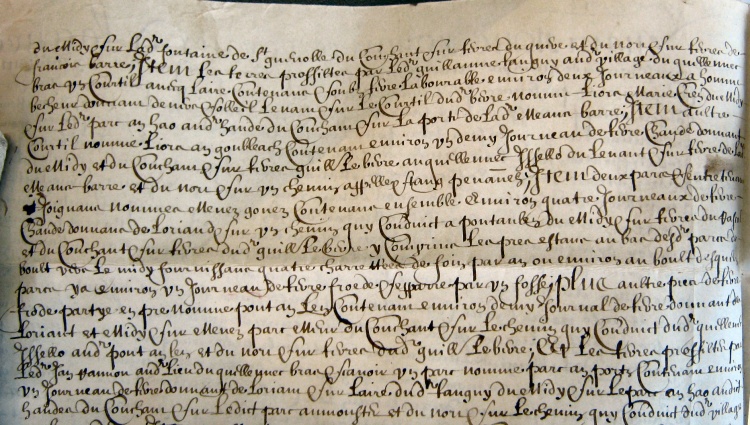 du Midy sur lad^e fontaine de S^t guenolle du Couchant sur tirres du quive et du nort sur tirres de
francois barre Item les terres proffittes par led^t guillaume tanguy aud^t village du quellennec
bras un Courtil an ty Laire Contenant soubz tirre labourable environ deux Journeaux a homme
becheur donnant devers solleil Levant sur le Courtil dud^t bivre nomme Liors Marie Creis du Midy
sur led^t parc an hao aud^t hande du Couchant sur la porte de lad^e Meance barre; Item aultre
Courtil nomme Liors an goulleach Contenant environ un demy Journeau de tirre Chande donnant
du Midy et du Couchant sur tirres guill Lebivre au quellennec Issello du Levant sur tirre de lad^e
Meance barre et du nort sur un chemin appelle stang penanech; Item deux parcs s'entretenant
et Joignant nommes Menez gonez Contenant ensemble environ quatre Journeaux de tirre
Chande donnant de Loriand sur un chemin quy Conduict a pontanlen du Midy sur tirres du
et du Couchant sur tirres dud^t guill Lebivre; y Compris les pres estant au bas desd^s parcs de
boult vers le midy fournissant quatre charrettees de foin par an ou environ au boult desquels
parcs ya environ un Journeau de tirre froide separre par un fosse; plus aultre piece de tirre
froide partye en pre nomme pont an len Contenant environ demy Journal de tirre donnant de
Loriant et Midy sur Menez parc Meur du Couchant sur le chemin quy Conduict dud^t quellennec
Issello aud^t pont an len et du nort sur tirres dud^t guill Lebivre; Et les tirres proffittes par
led^t Jan vannou aud^t lieu du quellennec bras scavoir un parc nomme parc an pors Contenant environ
un Journeau de tirre donnant de Loriant sur Laire dud^t tanguy du Midy sur le parc an hao andict
handes du Couchant sur ledict parc anmonster et du nort sur le chemin quy Conduict dud^t village